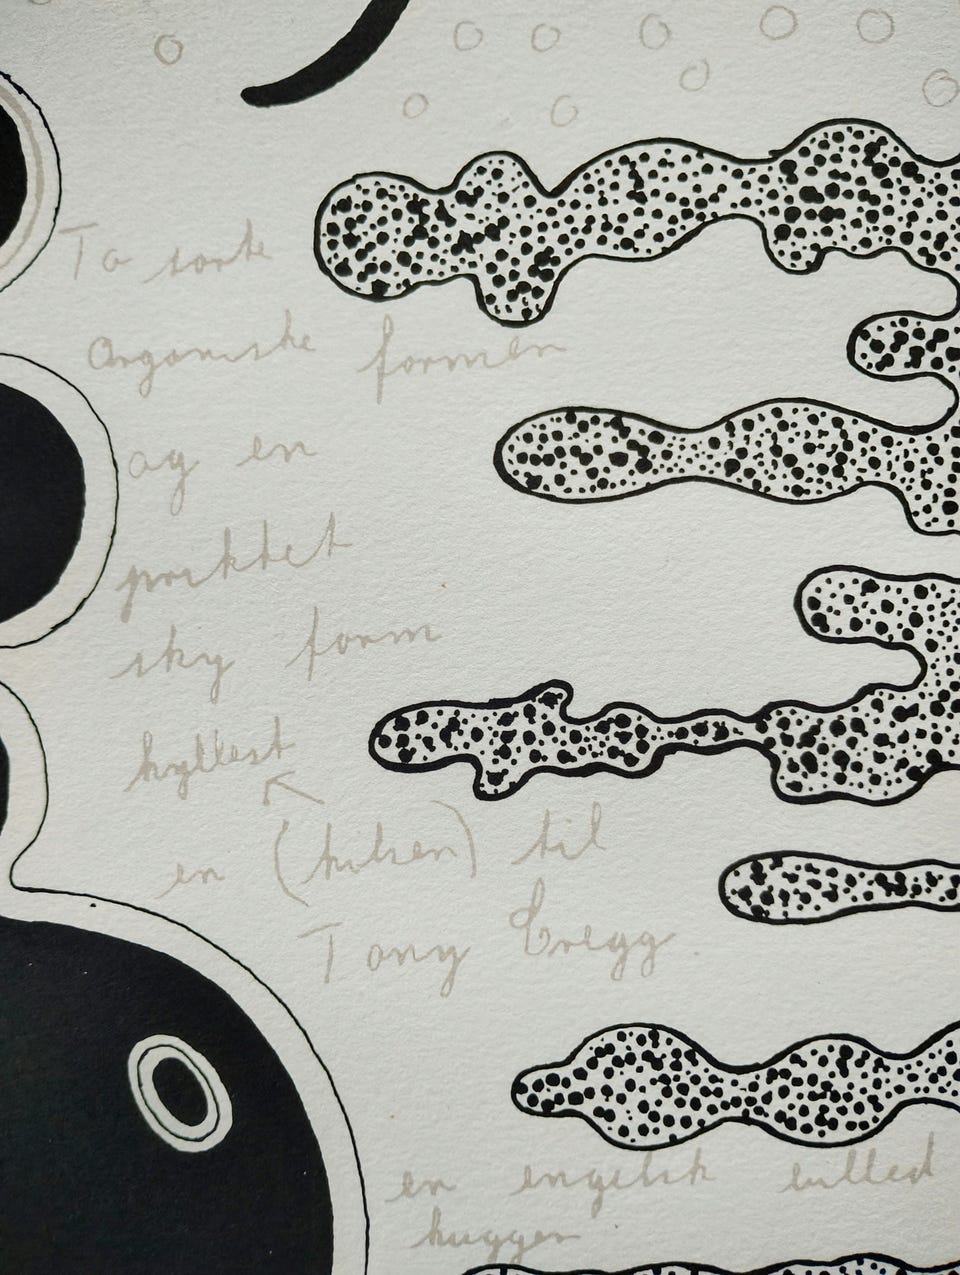 To sorte
Organiske former
og en
prikket
sky form
hyllest
en (hilsen) til
Tony Cregg.
en engelsk billed
hugger